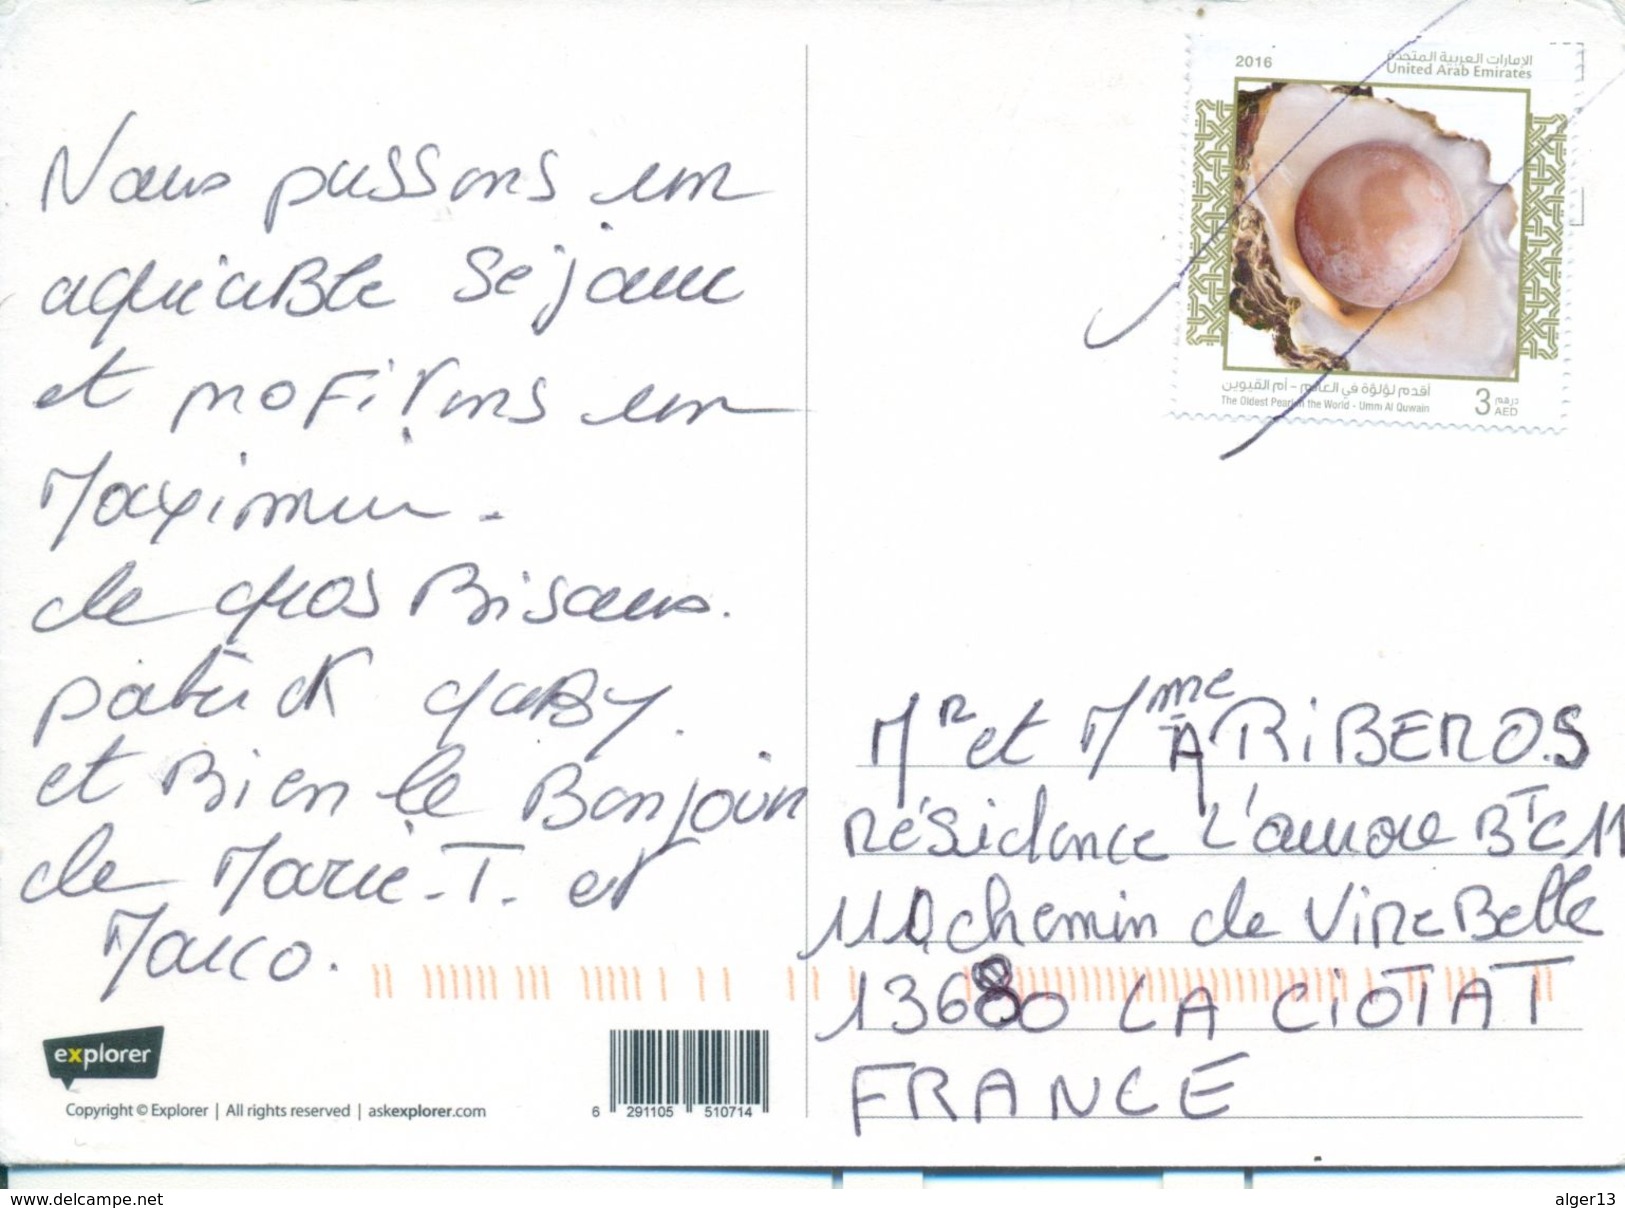 Nous passons un
agréable séjour
et profitons un
Maximum.
de gros Bisous.
patrick gaby.
et Bien le Bonjour
de Marie-T. et
Marco.
explorer
Copyright © Explorer | All rights reserved | askexplorer.com
6 291105 510714
2016
الإمارات العربية المتحدة
United Arab Emirates
أقدم لؤلؤة في العالم - أم القيوين
The Oldest Pearl in the World - Umm Al Quwain
3 درهم
AED
Mr et Mme A RiBEROS
Résidence L'aurore BTC11
chemin de VIREBelle
LA CIOTAT
FRANCE
www.delcampe.net
alger13